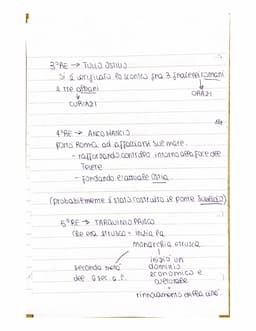 3° RE → TULLO OSTILIO
Si è verificato lo scontro fra 3 fratelli romani
e tre albani
ORAZI
CURIAZI
4° RE → ANCO MARCIO
Portò Roma ad affacciarsi sul mare.
- rafforzando controllo intorno alla foce del
Tevere
- fondando l'attuale Ostia.
(probabilmente è stato costruito il ponte Sublicio)
5° RE → TARQUINIO PRISCO
che era etrusco - inizia la
monarchia etrusca
seconda metà
del a.C.
iniziò un
dominio
economico e
culturale
rinnovamento della città.